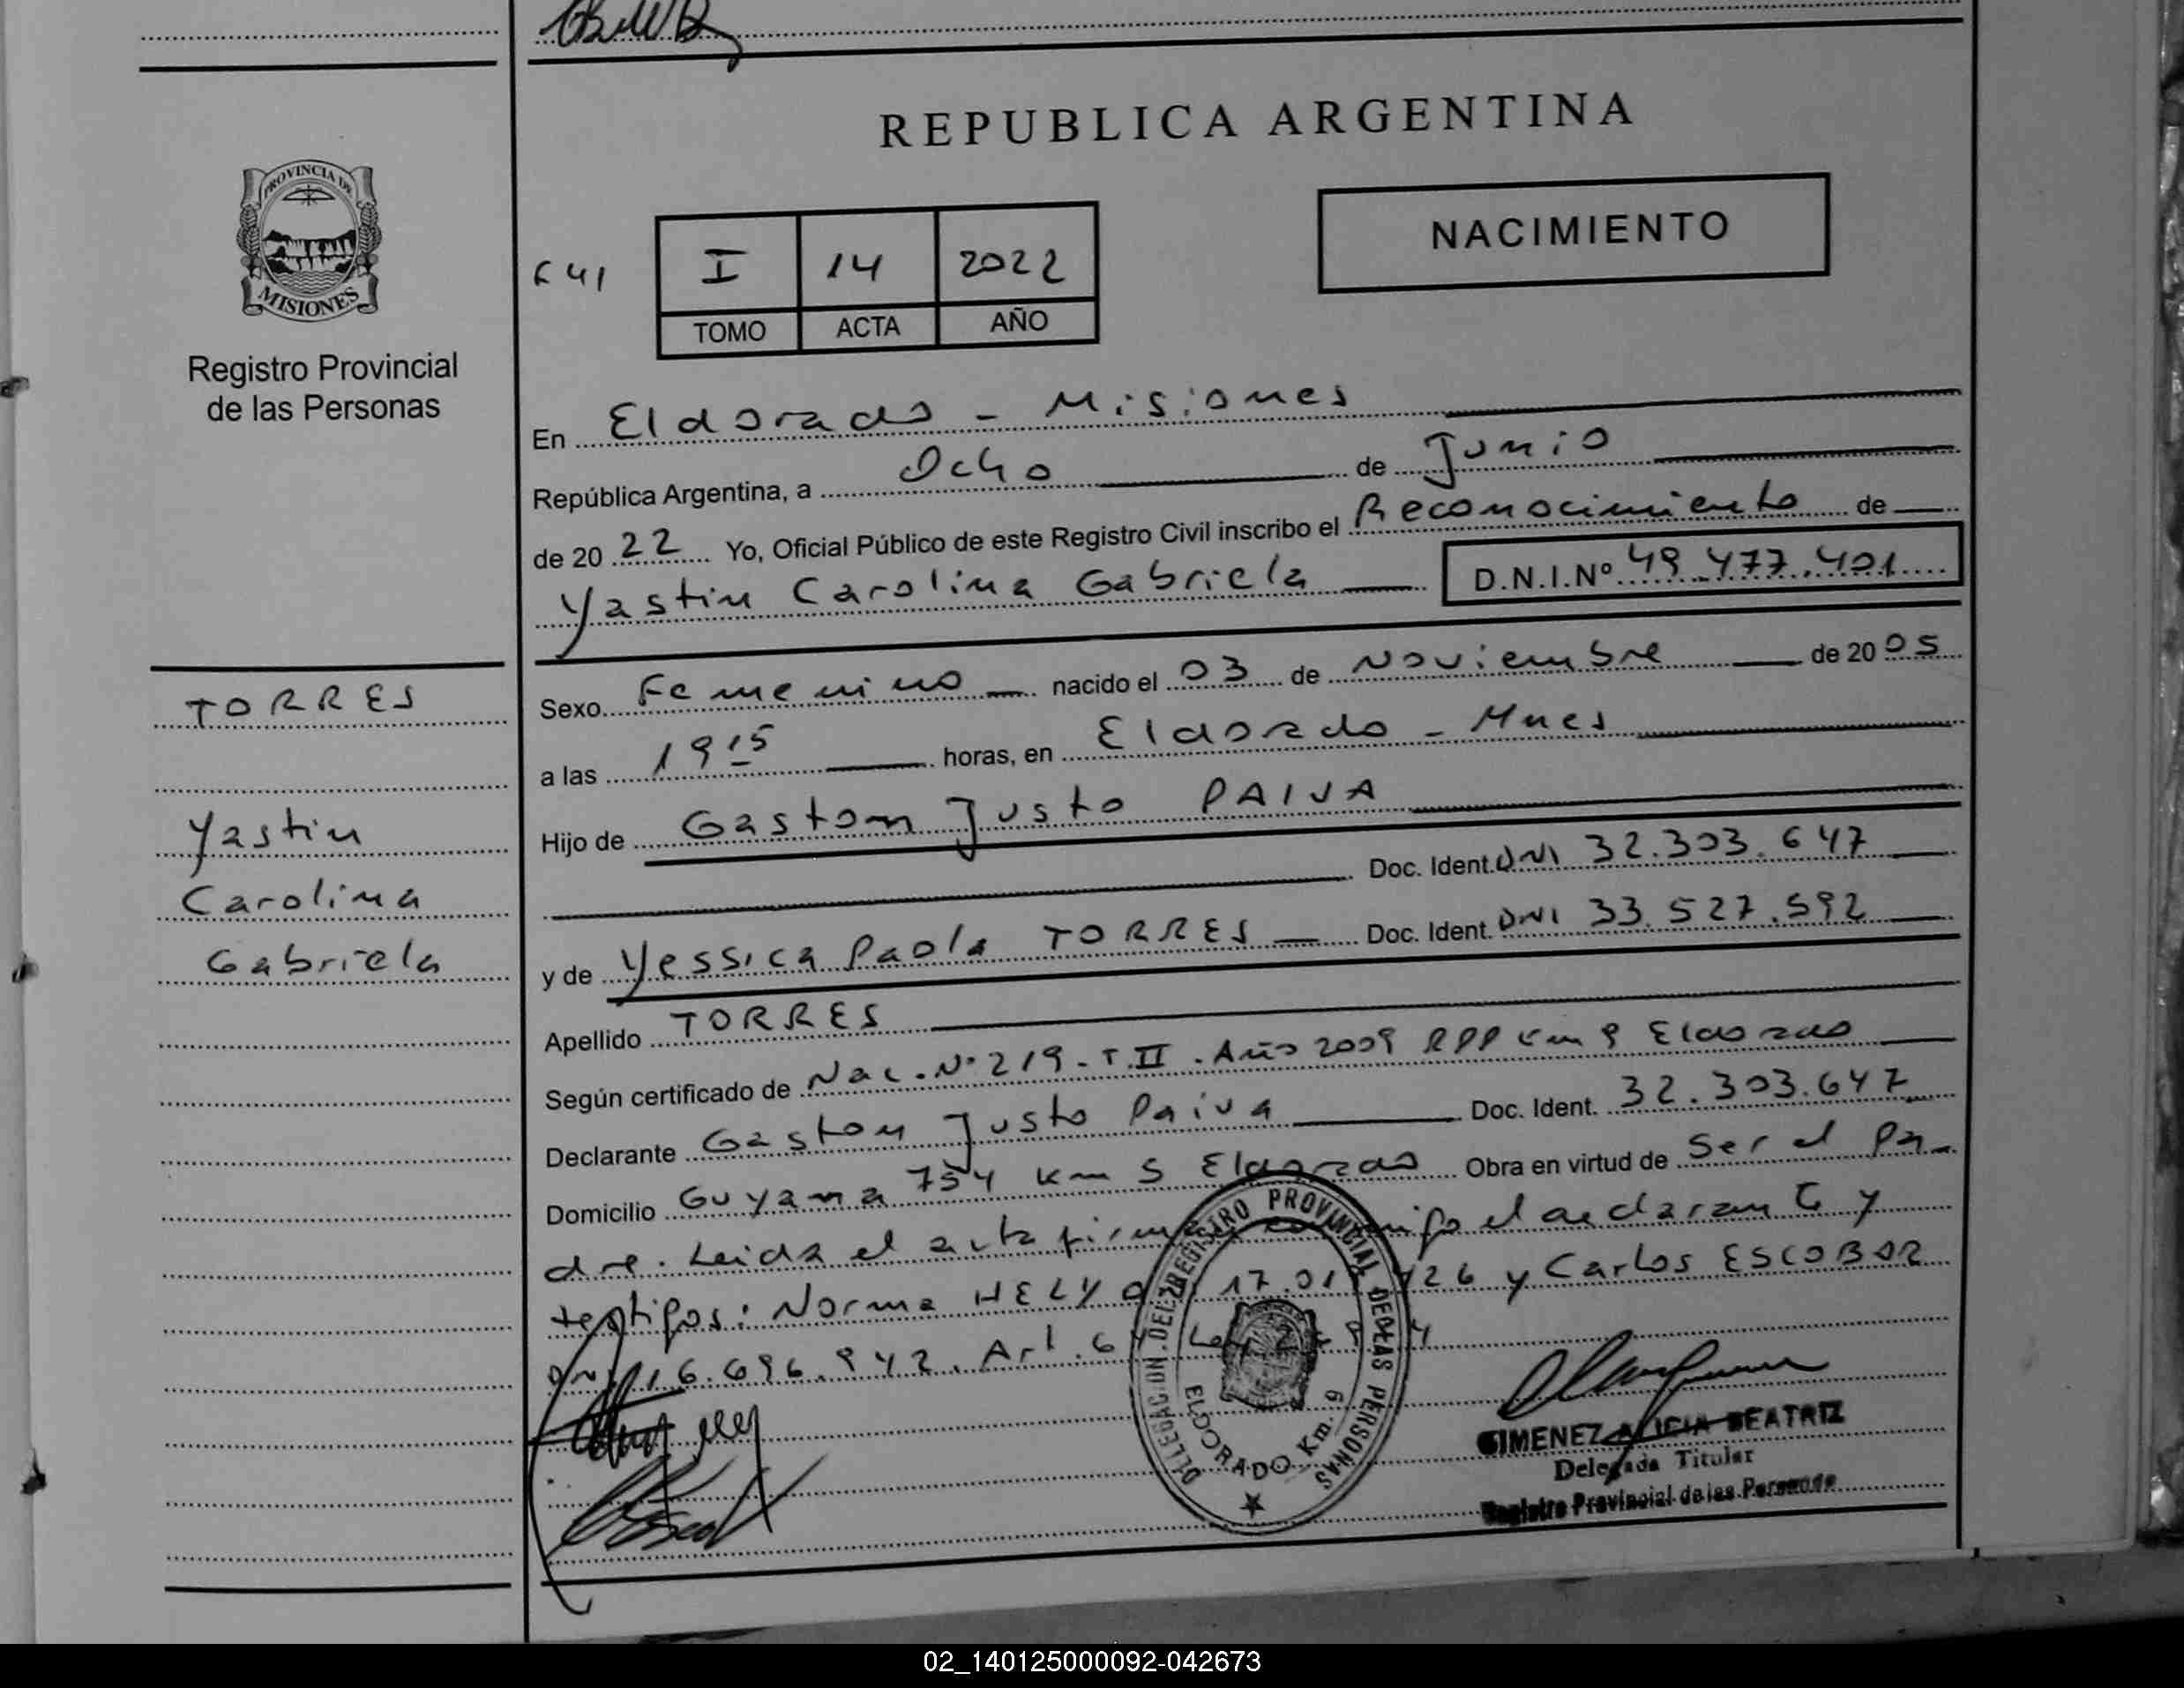 REPUBLICA ARGENTINA
PROVINCIA DE
MISIONES
Registro Provincial
de las Personas
NACIMIENTO
I 14 2022
TOMO ACTA AÑO
En Eldorado - Misiones
República Argentina, a Ocho de Junio
de 20 22 Yo, Oficial Público de este Registro Civil inscribo el Reconocimiento de
Yastin Carolina Gabriela D.N.I.Nº 49.477.401
TORRES
Yastin
Carolina
Gabriela
Sexo Femenino nacido el 03 de Noviembre de 20 05
a las 19 15 horas, en Eldorado - Mnes
Hijo de Gaston Justo PAIVA
Doc. Ident. DNI 32.303.647
y de Yessica Paola TORRES Doc. Ident. DNI 33.527.592
Apellido TORRES
Según certificado de Nac. Nº 219 - T.II. Año 2009 RPP Km 9 Eldorado
Declarante Gaston Justo Paiva Doc. Ident. 32.303.647
Domicilio Guyana 754 Km 5 Eldorado Obra en virtud de Ser el Pa-
dre. Leida el acta el declarante y
testigos: Norma 17.01 426 y Carlos ESCOBAR
DNI 16.696.942. Art. 6
DELEGACION DEL REGISTRO PROVINCIAL DE LAS PERSONAS
ELDORADO Km. 9
GIMENEZ ALICIA BEATRIZ
Delegada Titular
Registro Provincial de las Personas
02_140125000092-042673